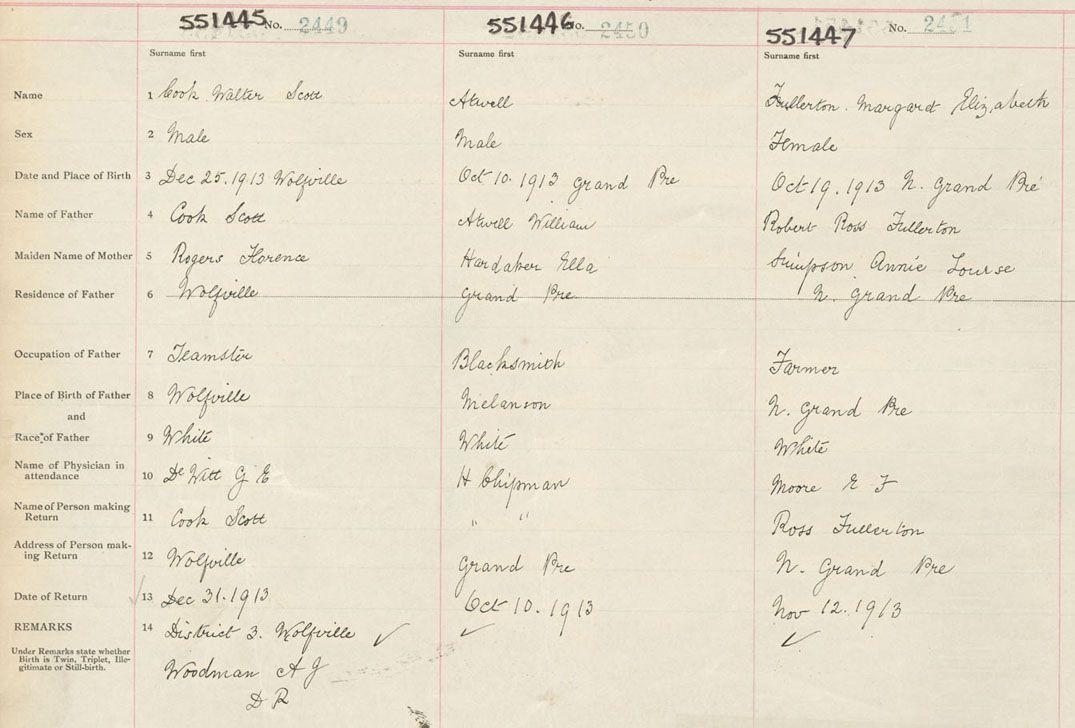 551445 No. 2449 551446 No. 2450 551447 No. 2451
Surname first Surname first Surname first
Name 1 Cook Walter Scott Atwell Fullerton. Margaret Elizabeth
Sex 2 Male Male Female
Date and Place of Birth 3 Dec 25.1913 Wolfville Oct 10. 1913 Grand Pre Oct 19. 1913 N. Grand Pré
Name of Father 4 Cook Scott Atwell William Robert Ross Fullerton
Maiden Name of Mother 5 Rogers Florence Hardaker Ella Simpson Annie Louise
Residence of Father 6 Wolfville Grand Pre N. Grand Pre
Occupation of Father 7 Teamster Blacksmith Farmer
Place of Birth of Father 8 Wolfville Melanson N. Grand Pre
and
Race of Father 9 White White White
Name of Physician in
attendance 10 De Witt G E H Chipman Moore E F
Name of Person making
Return 11 Cook Scott " " Ross Fullerton
Address of Person mak-
ing Return 12 Wolfville Grand Pre N. Grand Pre
Date of Return 13 Dec 31.1913 Oct 10. 1913 Nov 12. 1913
REMARKS 14 District 3. Wolfville
Under Remarks state whether
Birth is Twin, Triplet, Ille-
gitimate or Still-birth.
Woodman A J
D R